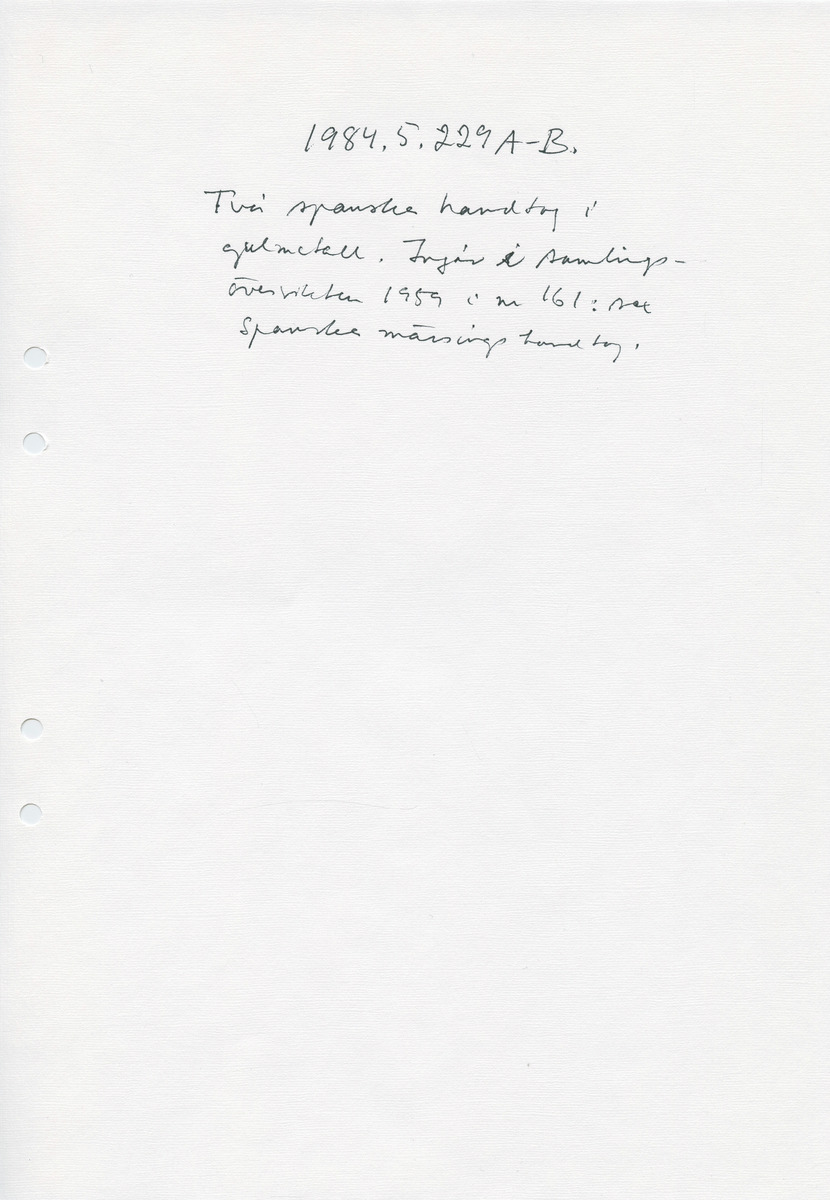 1984.5.229 A-B.
Två spanska handtag i
gulmetall. Ingår i samlings-
översikten 1959 i nr 161: sex
Spanska mässings handtag.